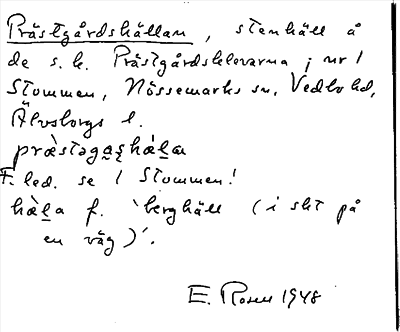 Prästgårdshällan, stenhäll å
de s. k. Prästgårdsklevarna i nr 1
Stommen, Nössemarks sn, Vedbo hd,
Älvsborgs l.
F. led. se 1 Stommen!
f. 'berghäll (i sht på
en väg)'.
E. Rosell 1948